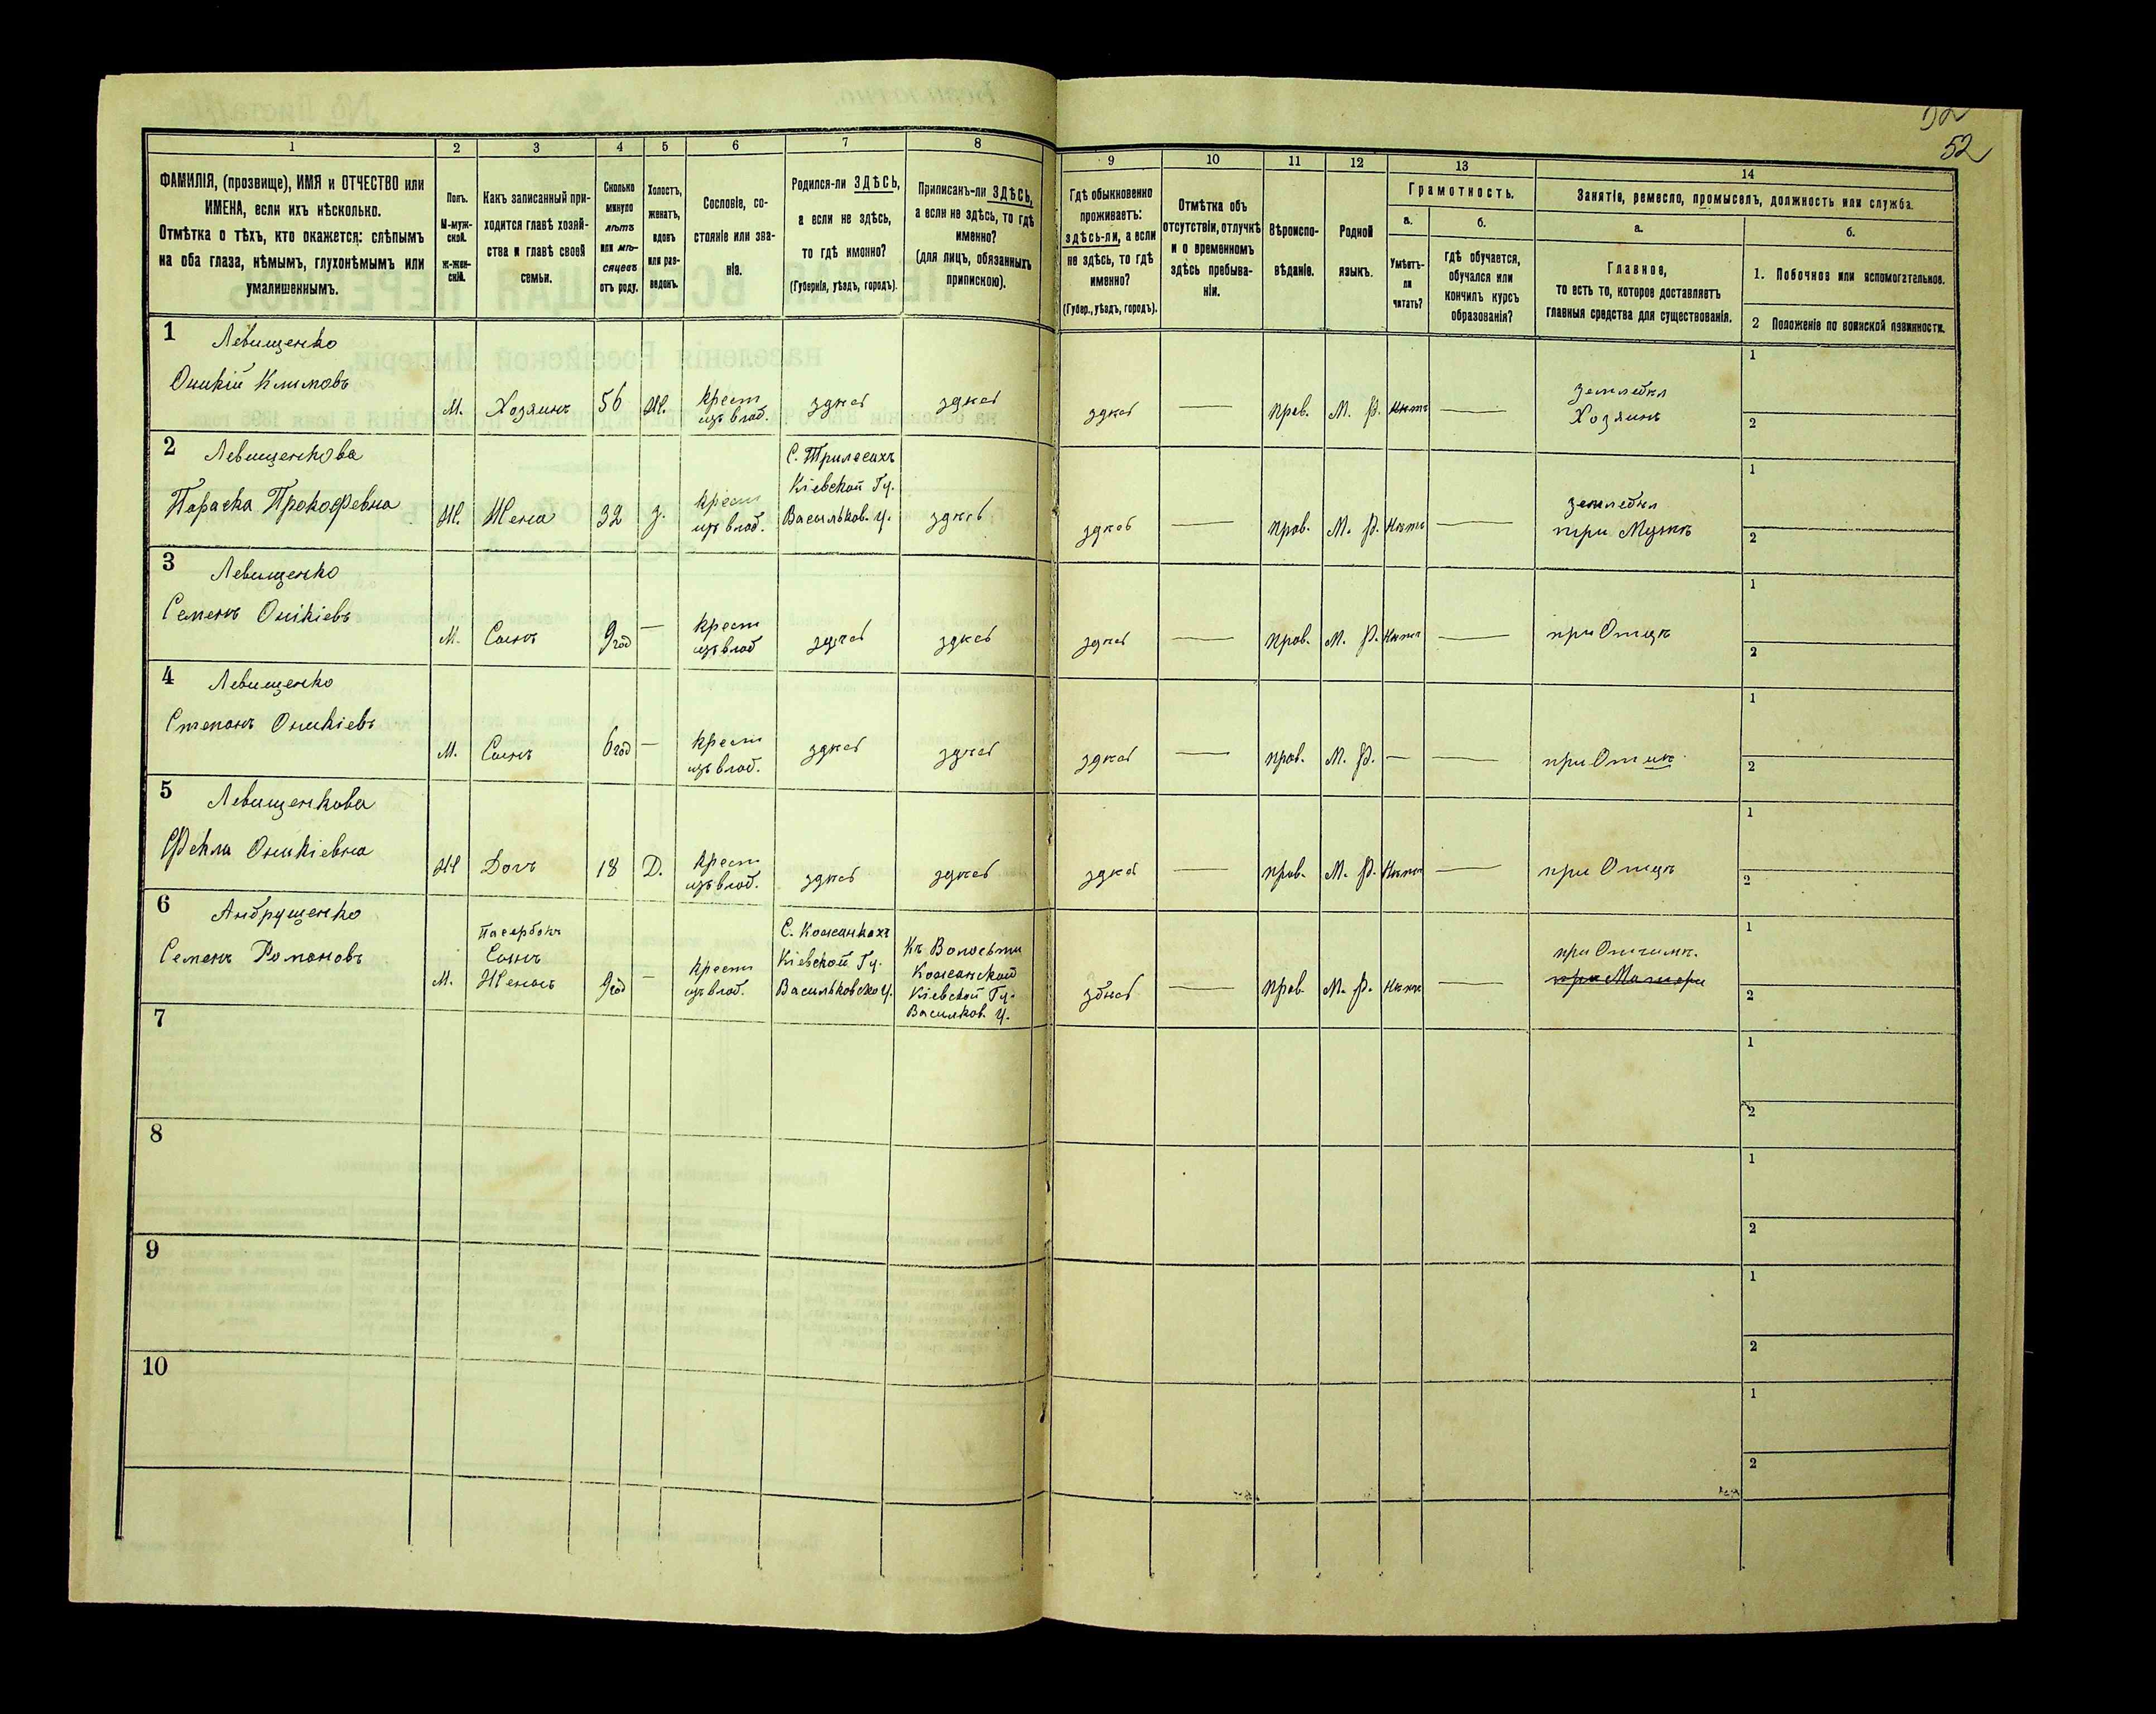 52
52
1 2 3 4 5 6 7 8 9 10 11 12 13 14
ФАМИЛІЯ, (прозвище), ИМЯ и ОТЧЕСТВО или
ИМЕНА, если ихъ нѣсколько.
Отмѣтка о тѣхъ, кто окажется: слѣпымъ
на оба глаза, нѣмымъ, глухонѣмымъ или
умалишеннымъ.
Полъ.
М-муж-
ской.
Ж-жен-
скій.
Какъ записанный при-
ходится главѣ хозяй-
ства и главѣ своей
семьи.
Сколько
минуло
лѣтъ
или мѣ-
сяцевъ
отъ роду.
Холостъ,
женатъ,
вдовъ
или раз-
веденъ.
Сословіе, со-
стояніе или зва-
ніе.
Родился-ли ЗДѢСЬ,
а если не здѣсь,
то гдѣ именно?
(Губернія, уѣздъ, городъ).
Приписанъ-ли ЗДѢСЬ,
а если не здѣсь, то гдѣ
именно?
(для лицъ, обязанныхъ
припискою).
Гдѣ обыкновенно
проживаетъ:
здѣсь-ли, а если
не здѣсь, то гдѣ
именно?
(Губер., уѣздъ, городъ).
Отмѣтка объ
отсутствіи, отлучкѣ
и о временномъ
здѣсь пребыва-
ніи.
Вѣроиспо-
вѣданіе.
Родной
языкъ.
Грамотность.
а.
Умѣетъ-
ли
читать?
б.
гдѣ обучается,
обучался или
кончилъ курсъ
образованія?
Занятіе, ремесло, промыселъ, должность или служба.
а.
Главное,
то есть то, которое доставляетъ
главныя средства для существованія.
б.
1. Побочное или вспомогательное.
2 Положеніе по воинской повинности.
1 Левищенко
Оникій Климовъ
М. Хозяинъ 56 Ж. крест
изъ влад. здѣсь здѣсь здѣсь — прав. М. Р. Нѣтъ — землебкл
Хозяинъ
1
2
2 Левищенкова
Параска Прокофевна
Ж. Жена 32 З. крест
изъ влад. С. Трилесахъ
Кіевской Гу.
Васильков. У. здѣсь здѣсь — прав. М. Р. Нѣтъ — землебкл
при Мужѣ
1
2
3 Левищенко
Семенъ Оникіевъ
М. Сынъ 9 год — крест
изъ влад здѣсь здѣсь здѣсь — прав. М. Р. Нѣтъ — при Отцѣ
1
2
4 Левищенко
Степанъ Оникіевъ
М. Сынъ 6 год — крест
изъ влад. здѣсь здѣсь здѣсь — прав. М. Р. — — при Отцѣ
1
2
5 Левищенкова
Фекла Оникіевна
Ж Дочъ 18 Д. крест
изъ влад. здѣсь здѣсь здѣсь — прав. М. Р. Нѣтъ — при Отцѣ
1
2
6 Андрущенко
Семенъ Романовъ
М. Пасербокъ
Сынъ
Женинъ 9 год — крест
изъ влад. С. Кожанкахъ
Кіевской Гу.
Васильковско У. Къ Волосьти
Кожанской
Кіевской Гу.
Васильков. У. здѣсь — прав М. Р. Нѣтъ — при Отчимѣ.
при Матери
1
2
7
1
2
8
1
2
9
1
2
10
1
2